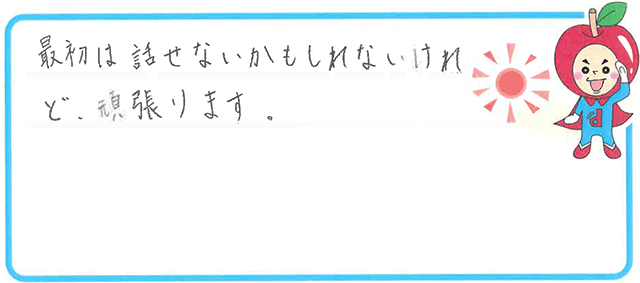 最初は話せないかもしれないけれ
ど、頑張ります。
d